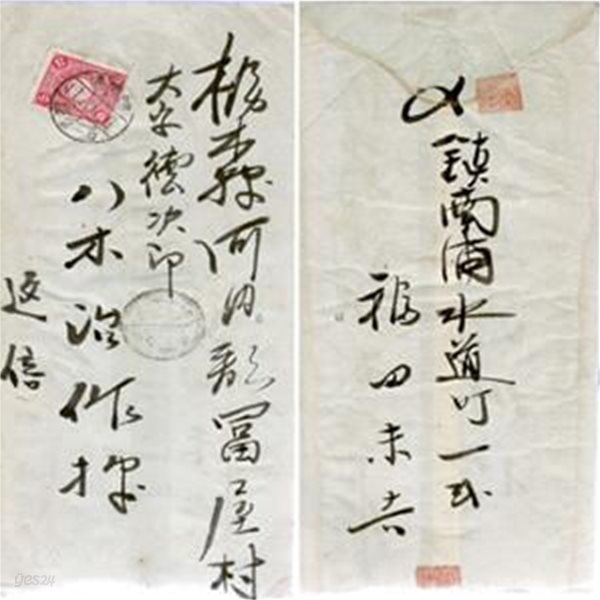 栃木縣河内郡富屋村
大字徳次郎
八木治作様
返信
〆
鎮南浦水道町一ノ
福田末吉
yes24